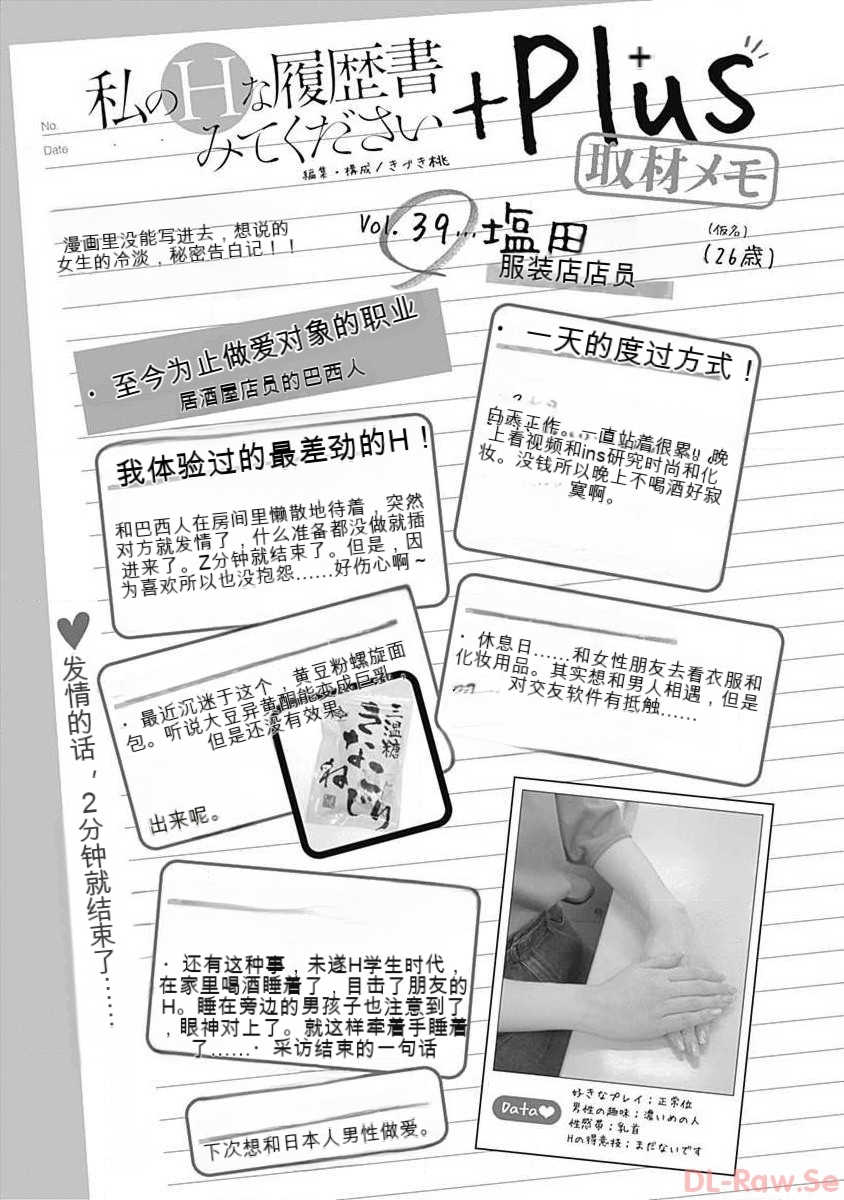 No.
Date
私のHな履歴書
みてください
+Plus
編集・構成/きづき桃
取材メモ
漫画里没能写进去，想说的
女生的冷淡，秘密告白记！！
Vol. 39...塩田
(仮名)
(26歳)
服装店店员
・至今为止做爱对象的职业
居酒屋店员的巴西人
・一天的度过方式！
白天工作。一直站着很累，晚
上看视频和ins研究时尚和化
妆。没钱所以晚上不喝酒好寂
寞啊。
我体验过的最差劲的H！
和巴西人在房间里懒散地待着，突然
对方就发情了，什么准备都没做就插
进来了。Z分钟就结束了。但是，因
为喜欢所以也没抱怨……好伤心啊～
♥发情的话，2分钟就结束了……
・休息日……和女性朋友去看衣服和
化妆用品。其实想和男人相遇，但是
对交友软件有抵触……
・最近沉迷于这个，黄豆粉螺旋面
包。听说大豆异黄酮能变成巨乳。
但是还没有效果
出来呢。
三温糖
きなこ
ねじり
・还有这种事，未遂H学生时代，
在家里喝酒睡着了，目击了朋友的
H。睡在旁边的男孩子也注意到了
，眼神对上了。就这样牵着手睡着
了……・采访结束的一句话
下次想和日本人男性做爱。
Data♥
好きなプレイ；正常位
男性の趣味；濃いめの人
性感帯；乳首
Hの得意技；まだないです
DL-Raw.Se